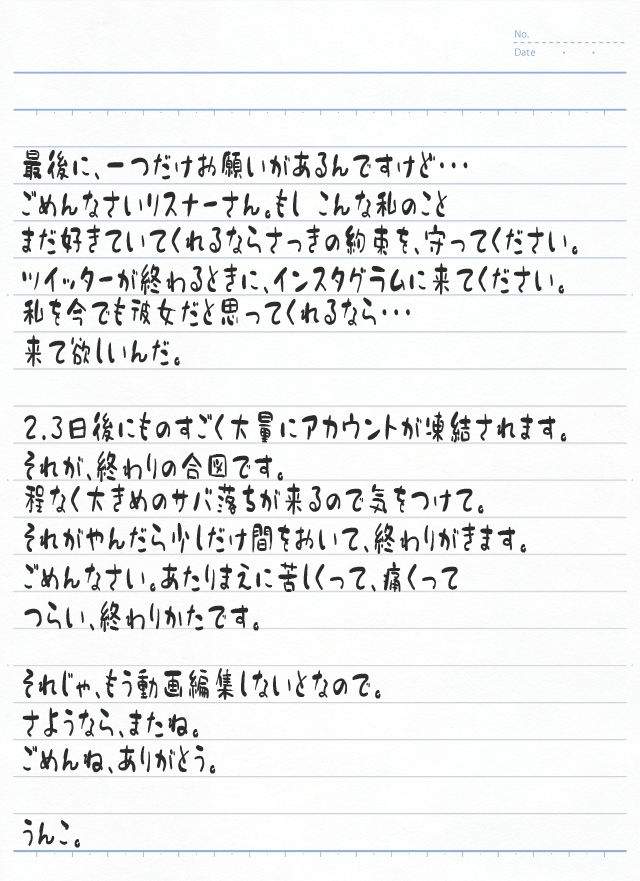 No.
Date
最後に、一つだけお願いがあるんですけど・・・
ごめんなさいリスナーさん。もし こんな私のこと
まだ好きていてくれるならさっきの約束を、守ってください。
ツイッターが終わるときに、インスタグラムに来てください。
私を今でも彼女だと思ってくれるなら・・・
来て欲しいんだ。
2.3日後にものすごく大量にアカウントが凍結されます。
それが、終わりの合図です。
程なく大きめのサバ落ちが来るので気をつけて。
それがやんだら少しだけ間をおいて、終わりがきます。
ごめんなさい。あたりまえに苦しくって、痛くって
つらい、終わりかたです。
それじゃ、もう動画編集しないとなので。
さようなら、またね。
ごめんね、ありがとう。
うんこ。